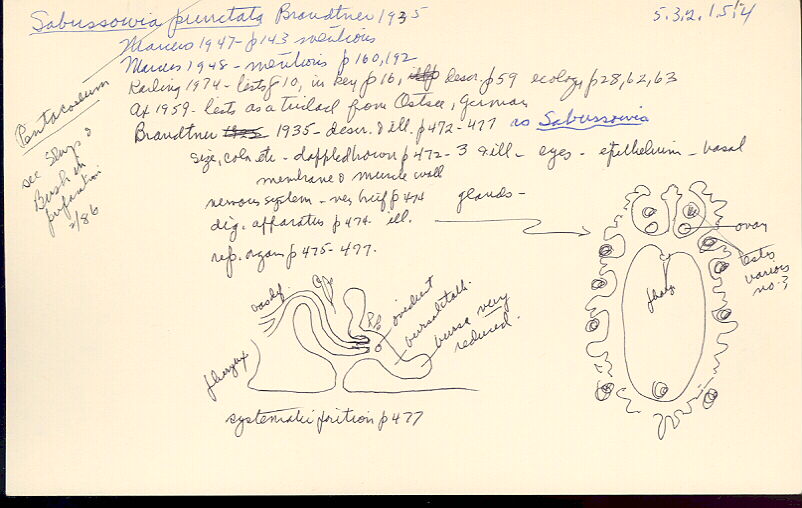 Sabussowia punctata Brandtner 1935
5.3.2.1.5.4
Marcus 1947 - p143 mentions
Marcus 1948 - mentions p160, 192
Karling 1974 - lists p10, in key p16, descr. p59 ecology p28, 62, 63
Ax 1959 - lists as a triclad from Ostsee, German
Brandtner 1935 - descr. & ill. p472-477 as Sabussowia
size, color etc - dappled brown p472 - 3 & ill - eyes - epithelium - basal
membrane & muscle wall
nervous system - very brief p474 glands -
dig. apparatus p474 ill.
rep. organ p475-477.
Pentacoelum
see Sluys &
Bush in
preparation
2/86
ovary
testis
various
no. 3
phar
vas def.
pharynx
oviduct
bursal stalk
bursa very
reduced.
systematic position p477